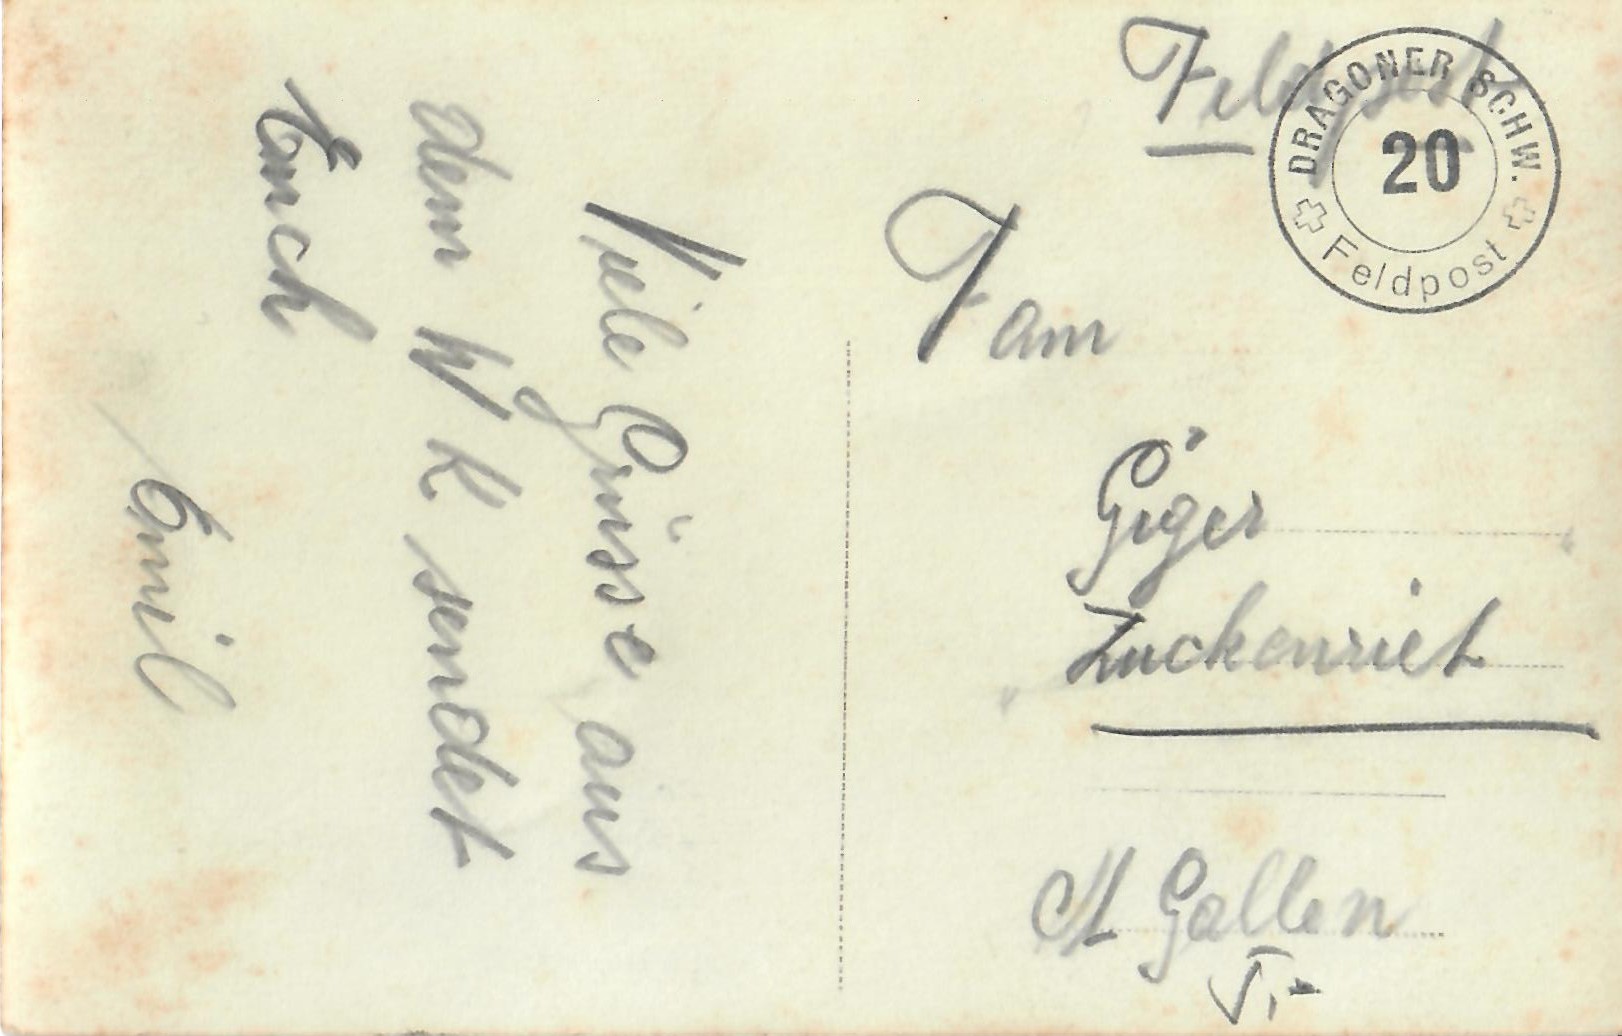 Viele Grüsse aus
dem W K sendet
Euch
Emil
Feldpost
DRAGONER SCHW.
20
Feldpost
Fam
Giger
Zuckenriet
St Gallen